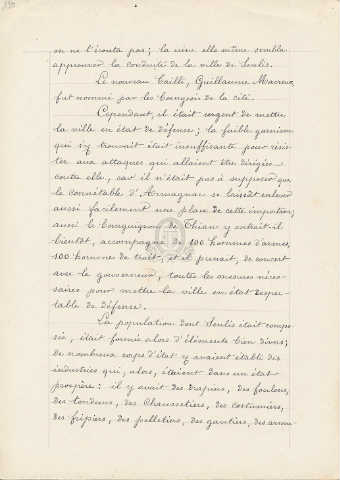 on ne l'écouta pas ; la reine elle même semble
approuver la conduite de la ville de Senlis.
Le nouveau Bailli, Guillaume Macreux,
fut nommé par les Bourgeois de la cité.
Cependant, il était urgent de mettre
la ville en état de défense ; la faible garnison
qui s'y trouvait était insuffisante pour résis-
ter aux attaques qui allaient être dirigées
contre elle, car il n'était pas à supposer que
le Connétable d'Armagnac se laissât enlever
aussi facilement une place de cette importance,
aussi le Bourguignon de Thian y entrait-il
bientôt, accompagné de 100 hommes d'armes,
100 hommes de trait, et il prenait, de concert
avec le gouverneur, toutes les mesures néces-
saires pour mettre la ville en état respec-
table de défense.
La population dont Senlis était compo-
sée, était formée alors d'éléments bien divers ;
de nombreux corps d'état y avaient établi des
industries qui, alors, étaient dans un état
prospère : il y avait des drapiers, des foulons,
des tondeurs, des chaussetiers, des costumiers,
des fripiers, des pelletiers, des gantiers, des armu-